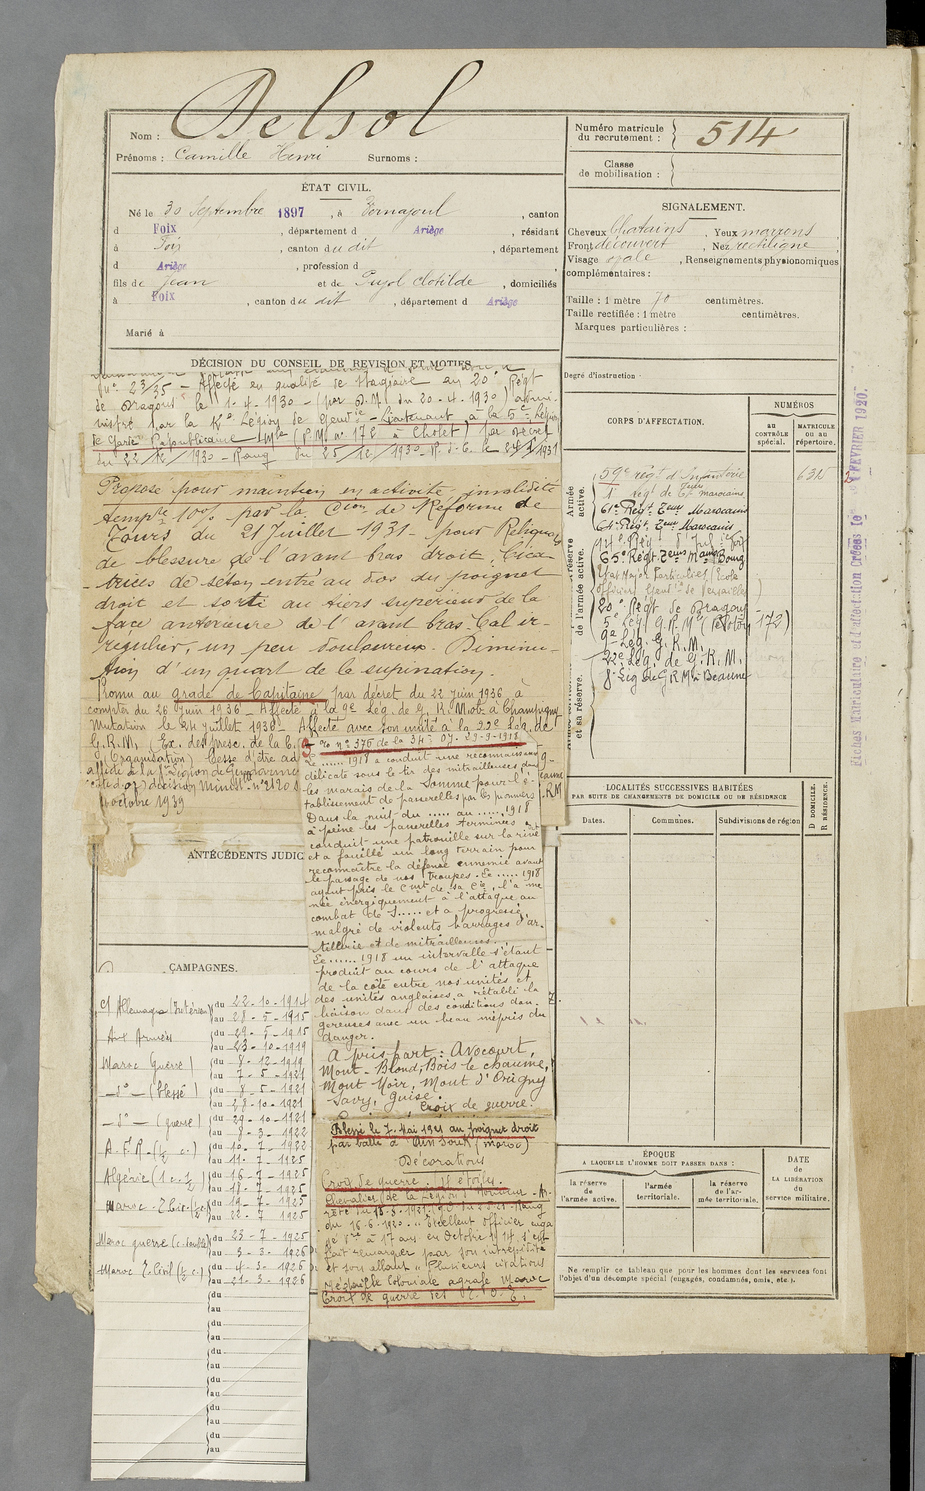 Nom : Delsol
Prénoms : Camille Henri Surnoms :
Numéro matricule du recrutement : 514
Classe de mobilisation :
ÉTAT CIVIL.
Né le 30 Septembre 1897 , à Vernajoul , canton
d Foix , département d Ariège , résidant
à Foix , canton du dit , département
d Ariège , profession d
fils de Jean et de Pujol Clotilde , domiciliés
à Foix , canton du dit , département d Ariège
Marié à
SIGNALEMENT.
Cheveux Chatains , Yeux marrons
Front découvert , Nez rectiligne
Visage ovale , Renseignements physionomiques
complémentaires :
Taille : 1 mètre 70 centimètres.
Taille rectifiée : 1 mètre centimètres.
Marques particulières :
Degré d'instruction
DÉCISION DU CONSEIL DE REVISION ET MOTIFS
- Affecté en qualité de Stagiaire au 20e Régt
de Dragons le 1-4-1930 - (par D.M. du 20-4-1930)
Légion de Gend - Lieutenant à la 5e Légion
de Garde Républicaine Mle (P.M. n° 172 à Cholet) par décret
du 22/12/1930 - Rang du 25/12/1930
Proposé pour maintien en activité, invalidité
tempre 10% par la Cion de Réforme de
Tours du 21 Juillet 1931 - pour Reliquat
de blessure de l'avant bras droit. Cica-
-trices de séton entré au dos du poignet
droit et sorti au tiers supérieur de la
face antérieure de l'avant bras. Cal ir-
régulier, un peu douloureux. Diminu-
tion d'un quart de la supination.
Promu au grade de Capitaine par décret du 22 Juin 1936 à
compter du 26 Juin 1936 - Affecté à la 9e Lég. de G. R. Mob. à Champigny
Mutation le 24 juillet 1938 - Affecté avec son unité à la 22e Lég. de
G. R. M. (Ex. des presc. de la
Organisation) Cesse d'être
affecté à la Légion de Gendarmerie
décision Minist. n° 21208
octobre 1939
O n° 376 de la 34e D.I. 29-9-1918
Le ...... 1918 a conduit une reconnaissance
délicate sous le tir des mitrailleuses dans
les marais de la Somme pour l'é-
tablissement de passerelles par les pionniers
Dans la nuit du ..... au ..... 1918
à peine les passerelles terminées
conduit une patrouille sur la rive
et a fouillé un long terrain pour
reconnaître la défense ennemie avant
le passage de nos troupes. Le ..... 1918
ayant pris le Cmt de sa Cie, l'a me-
née énergiquement à l'attaque au
combat de S..... et a progressé
malgré de violents barrages d'ar-
tillerie et de mitrailleuses.
Le ...... 1918 un intervalle s'étant
produit au cours de l'attaque
de la côte entre nos unités et
des unités anglaises, a rétabli la
liaison dans des conditions dan-
gereuses avec un beau mépris du
danger.
A pris part : Avocourt,
Mont-Blond, Bois le chaume,
Mont Noir, Mont d'Origny
Savy, Guise.
Croix de guerre.
Blessé le 7 Mai 1921 au poignet droit
par balle à (Maroc)
Décorations
Croix de guerre
Chevalier de la Légion d'Honneur
du 16-6-1920 - "Excellent officier enga-
gé à 17 ans en Octobre 14 s'est
fait remarquer par son intrépidité
et son allant" Plusieurs citations
Médaille Coloniale agrafe Maroc
Croix de guerre des T.O.E.
ANTÉCÉDENTS JUDIC
CAMPAGNES.
Ct Allemagne (Intérieur) du 22-10-1914
au 28-5-1915
Aux Armées du 29-5-1915
au 23-10-1919
Maroc (guerre) du 8-12-1919
au 7-5-1921
-do- (blessé) du 8-5-1921
au 28-10-1921
-do- (guerre) du 29-10-1921
au 8-3-1922
A.F.R. (½ c.) du 10-7-1922
au 11-7-1925
Algérie (½) du 16-7-1925
au 18-7-1925
Maroc du 19-7-1925
au 22-7-1925
Maroc guerre (c. double) du 23-7-1925
au 3-3-1926
Maroc T. Civil (½ c.) du 4-3-1926
au 21-3-1926
du
au
du
au
du
au
du
au
du
au
du
au
CORPS D'AFFECTATION.
NUMÉROS
au CONTRÔLE spécial.
MATRICULE OU AU répertoire.
Armée active.
réserve de l'armée active.
et sa réserve.
59e régt d'Infanterie
1 régt de Tirs marocains
61e Régt Tirs Marocains
64e Régt Tirs Marocains
14e Rég d'Inf
65e Régt Tirs Mains Bourg
Etat Major Particulier (Ecole
officiers Gendie de Versailles)
20e Régt de Dragons
5e Lég G.R.Me (Peloton 172)
9e Lég. G.R.M.
22e Lég. de G.R.M.
8e Lég de G R M à Beaune
LOCALITÉS SUCCESSIVES HABITÉES
PAR SUITE DE CHANGEMENTS DE DOMICILE OU DE RÉSIDENCE
Dates.
Communes.
Subdivisions de région
D DOMICILE.
R RÉSIDENCE.
ÉPOQUE
A LAQUELLE L'HOMME DOIT PASSER DANS :
la réserve de l'armée active.
l'armée territoriale.
la réserve de l'armée territoriale.
DATE de LA LIBÉRATION du service militaire.
Ne remplir ce tableau que pour les hommes dont les services font
l'objet d'un décompte spécial (engagés, condamnés, omis, etc.).
Fiches Matriculaire et d'affectation Créées le FEVRIER 1920.